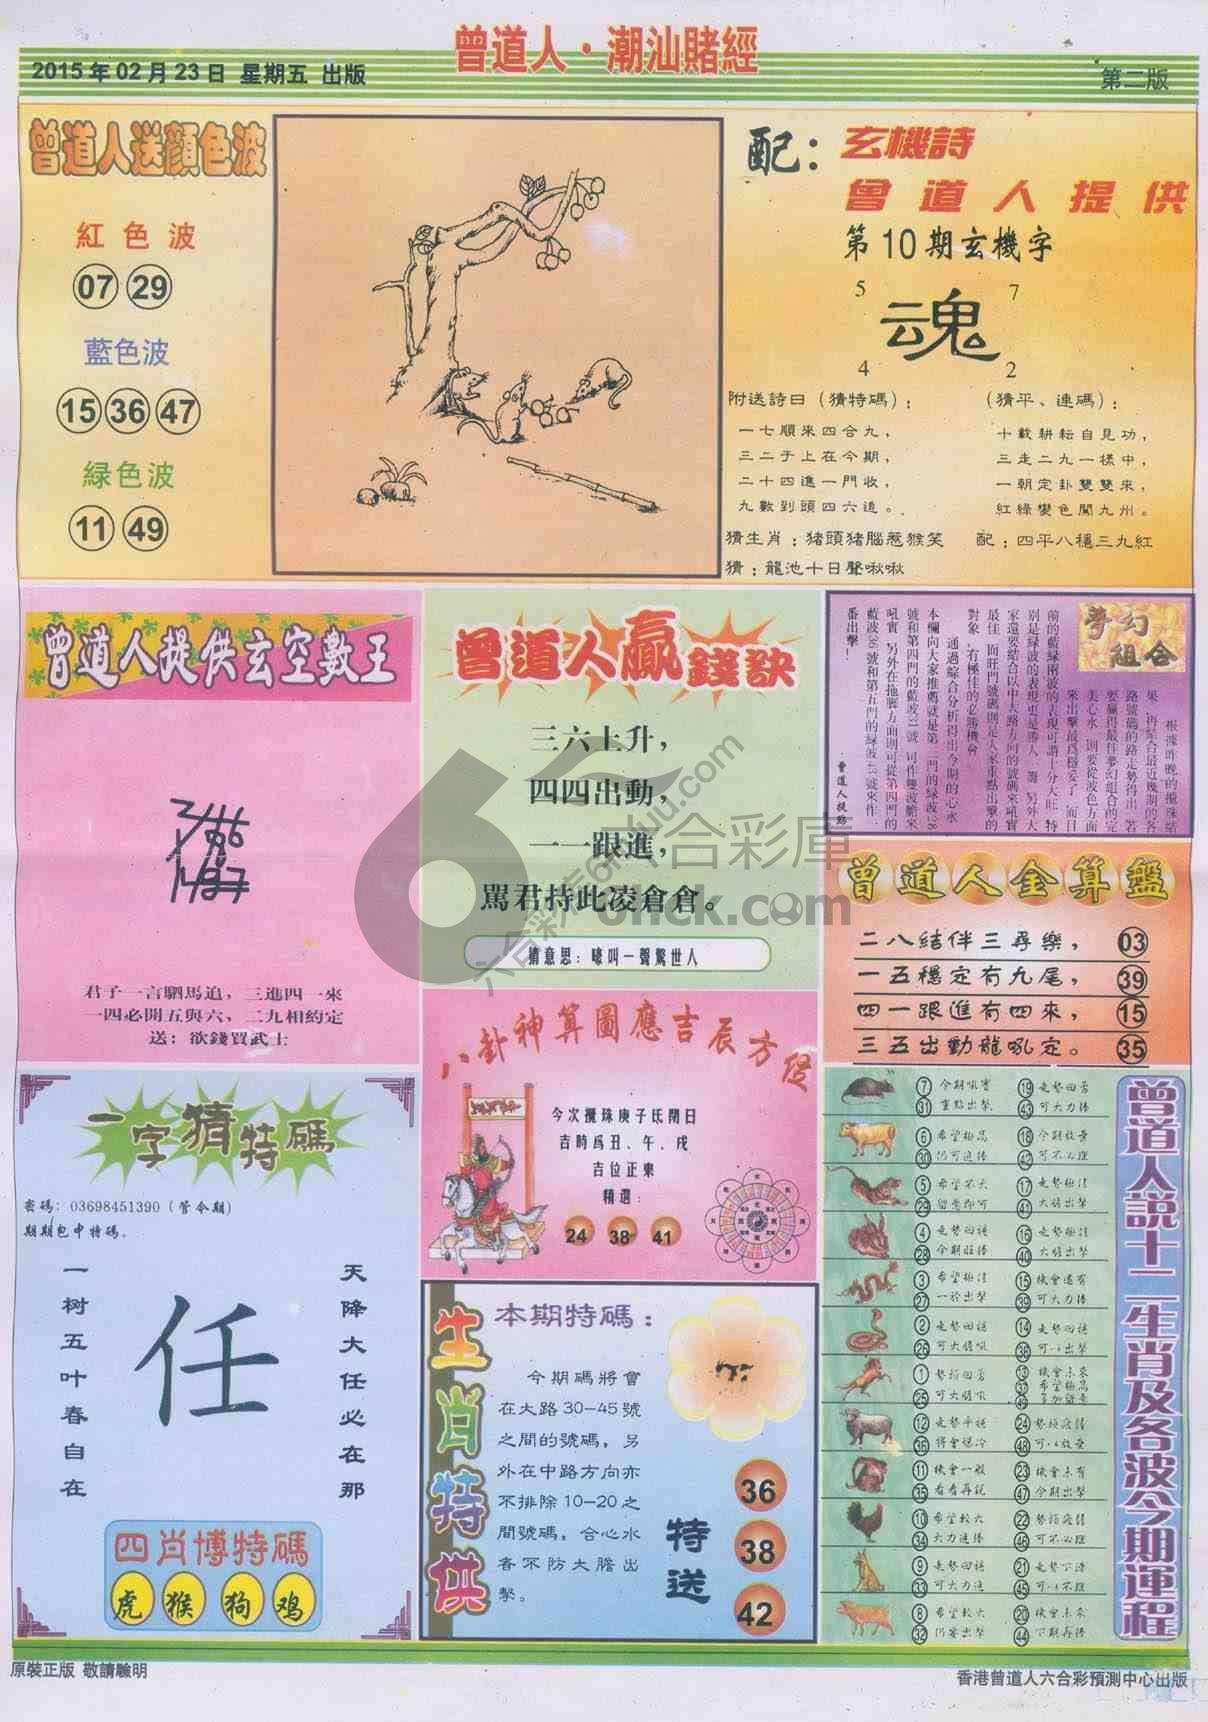 曾道人·潮汕賭經
2015年02月23日 星期五 出版
第二版
曾道人送顔色波
紅色波
07 29
藍色波
15 36 47
緑色波
11 49
配：
玄機詩
曾道人提供
第10期玄機字
5 7
魂
4 2
附送詩曰（猜特碼）：
一七順來四合九，
三二于上在今期，
二十四進一門收，
九數到頭四六追。
（猜平、連碼）：
十載耕耘自見功，
三走二九一樣中，
一朝定卦雙雙來，
紅綠變色闖九州。
猜生肖：猪頭猪腦惹猴笑
配：四平八穩三九紅
猜：龍池十日聲啾啾
曾道人提供玄空數王
君子一言駟馬追，三進四一來
一四必開五與六，二九相約定
送：欲錢買武士
曾道人贏錢訣
三六上升，
四四出動，
一一跟進，
罵君持此凌倉倉。
猜意思：嚎叫一聲驚世人
夢幻組合
根據昨晚的攪珠結
果，再結合最近幾期的各
路號碼的路走勢得出，若
要贏得最佳夢幻組合的完
美心水，則要從波色方面
來出擊最爲穩妥，而目
前的藍緑兩波的表現可謂十分大旺，特
别是緑波的表現更是勝人一籌，另外大
家還要結合以中大路方向的號碼來吼實
最佳，而旺門號碼則是大家重點出擊的
對象，有極佳的必勝機會。
通過綜合分析得出今期的心水，
本欄向大家推薦就是第二門的緑波
號和第四門的藍波31號，可作雙波膽來
吼實，另外在拖脚方面則可從第四門的
藍波36號和第五門的緑波43號來作一
番出擊！
·曾道人提點
曾道人全算盤
二八結伴三尋樂， 03
一五穩定有九尾， 39
四一跟進有四來， 15
三五出動龍吼定。 35
八卦神算圖應吉辰方位
今次攪珠庚子氐閉日
吉時爲丑、午、戌
吉位正東
精選：
24 38 41
一字猜特碼
密碼：03698451390（管令期）
期期包中特碼。
一树五叶春自在
任
天降大任必在那
四肖博特碼
虎 猴 狗 鸡
生肖特供
本期特碼：
今期碼將會
在大路30-45號
之間的號碼，另
外在中路方向亦
不排除10-20之
間號碼，合心水
者不防大膽出
擊。
特送
36
38
42
曾道人說十二生肖及各波今期運程
7 今期吼實 19 走勢回苦
31 重點出擊 43 可大力捧
6 希望極高 18 今期放棄
30 仍可追捧 42 可不必理
5 希望不大 17
29 留意即可 41 大膽出擊
4 走勢回穩 16
28 今期旺捧 40 大膽出擊
3 15 機會還有
27 39 可大力捧
2 走勢回穩 14 走勢回穩
26 38
1 13 機會未來
25 37 希望極高
49
12 走勢平穩 24
36 48
11 機會一般 23 機會未有
35 看看再説 47 今期出擊
10 希望較大 22
34 大力追捧 46 可不必理
9 走勢回穩 21
33 45
8 希望較大 20 機會未來
32 44 下期再捧
六合彩庫
6hck.com
原裝正版 敬請驗明
香港曾道人六合彩預測中心出版